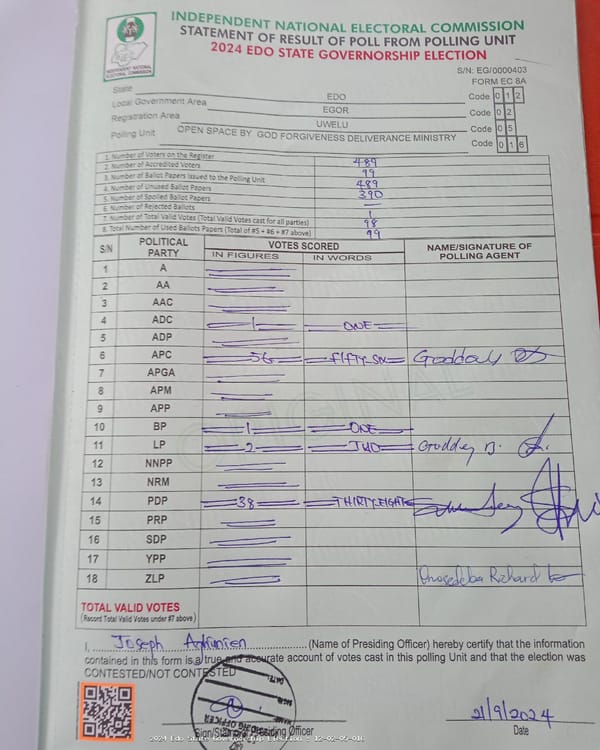 INDEPENDENT NATIONAL ELECTORAL COMMISSION
STATEMENT OF RESULT OF POLL FROM POLLING UNIT
2024 EDO STATE GOVERNORSHIP ELECTION
INDEPENDENT NATIONAL ELECTORAL COMMISSION
S/N: EG/0000403
FORM EC 8A
State EDO Code 0 1 2
Local Government Area EGOR Code 0 2
Registration Area UWELU Code 0 5
Polling Unit OPEN SPACE BY GOD FORGIVENESS DELIVERANCE MINISTRY Code 0 1 6
1. Number of Voters on the Register 489
2. Number of Accredited Voters 99
3. Number of Ballot Papers Issued to the Polling Unit 489
4. Number of Unused Ballot Papers 390
5. Number of Spoiled Ballot Papers —
6. Number of Rejected Ballots 1
7. Number of Total Valid Votes (Total Valid Votes cast for all parties) 98
8. Total Number of Used Ballots Papers (Total of #5 + #6 + #7 above) 99
S/N POLITICAL PARTY VOTES SCORED NAME/SIGNATURE OF POLLING AGENT
IN FIGURES IN WORDS
1 A
2 AA
3 AAC
4 ADC 1 ONE
5 ADP
6 APC 56 FIFTY SIX
7 APGA
8 APM
9 APP
10 BP 1 ONE
11 LP 2 TWO
12 NNPP
13 NRM
14 PDP 38 THIRTY EIGHT
15 PRP
16 SDP
17 YPP
18 ZLP Richard
ORIGINAL
TOTAL VALID VOTES
(Record Total Valid Votes under #7 above)
I, Joseph (Name of Presiding Officer) hereby certify that the information
contained in this form is a true and accurate account of votes cast in this polling Unit and that the election was
CONTESTED/NOT CONTESTED
DATE:
PRESIDING OFFICER
Sign/Stamp of Presiding Officer
21/9/2024
Date
2024 Edo State Governorship Election - 12-02-05-016